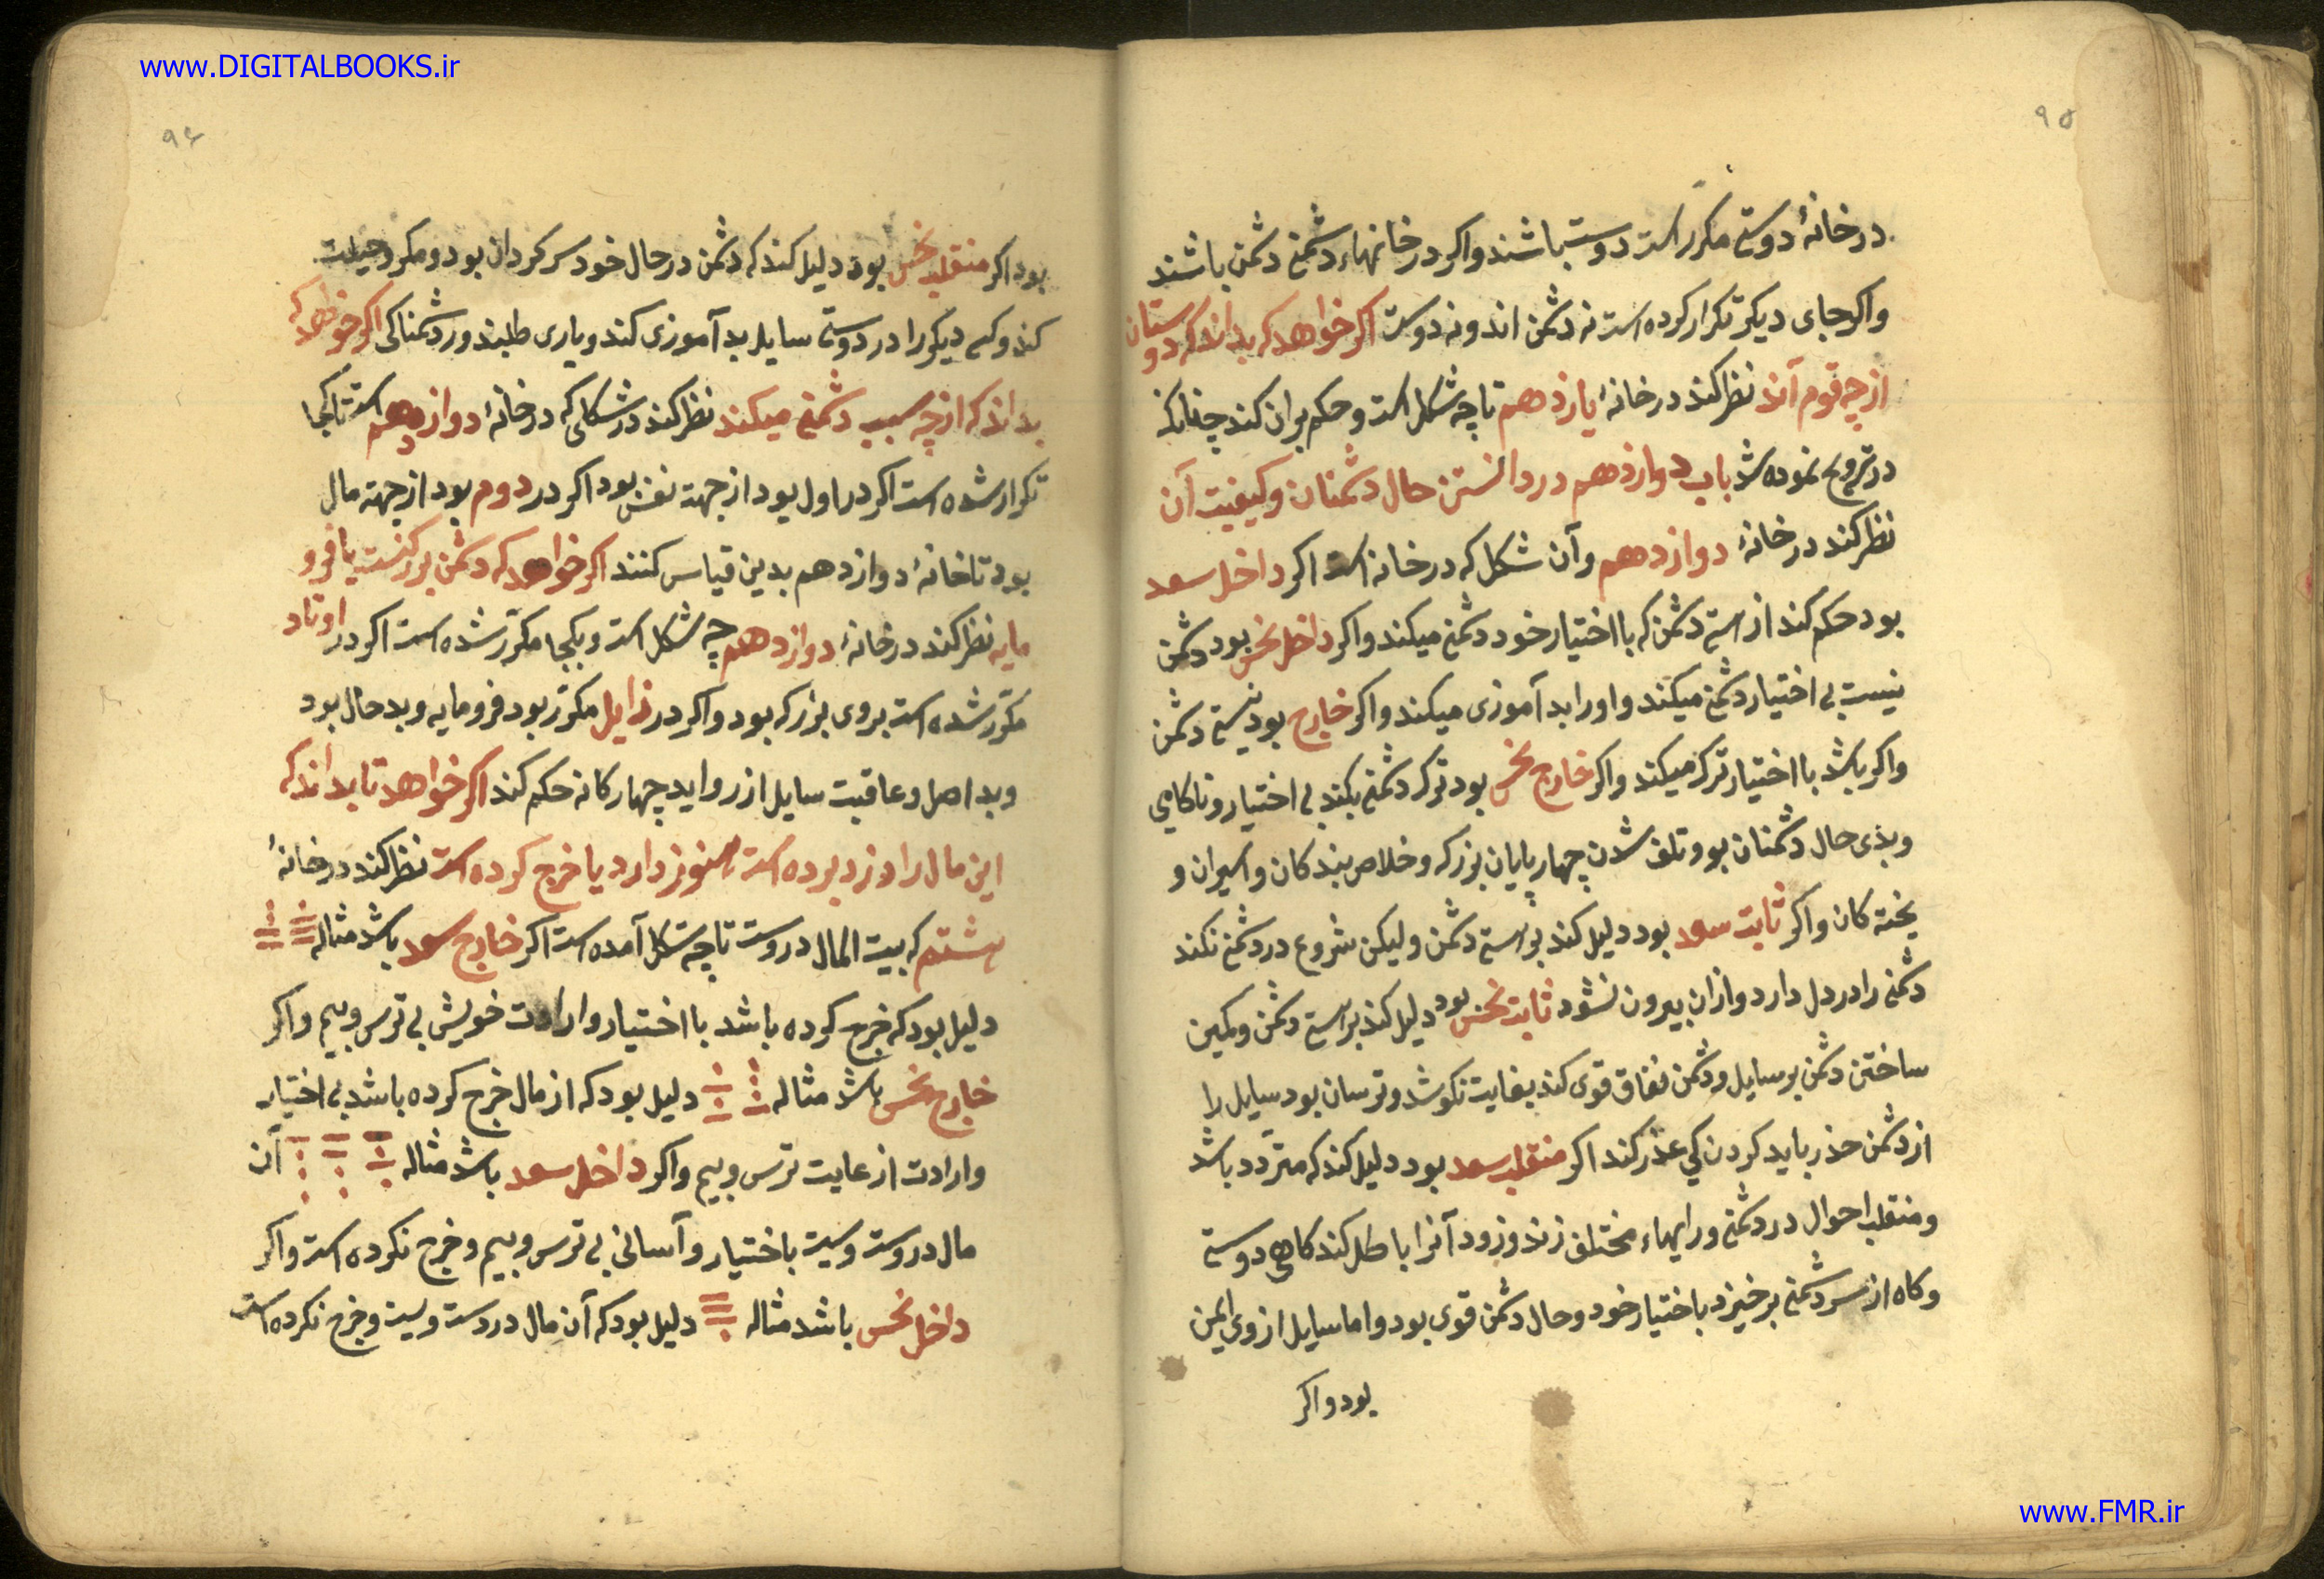 www.DIGITALBOOKS.ir
۹۵
در خانهٔ دوستی مکرر است دوست باشند و اکر در خانهاء دشمنی دشمن باشند
و اکر جای دیکر تکرار کرده است نه دشمن اند و نه دوست اکر خواهد که بداند که دوستان
از چه قوم آند نظر کند در خانهٔ یازدهم تا چه شکل است و حکم بران کند چنانکه
در تزویج نموده شد باب دوازدهم در دانستن حال دشمنان و کیفیت آن
نظر کند در خانهٔ دوازدهم و آن شکل که در خانه است اکر داخل سعد
بود حکم کند از استی دشمن که با اختیار خود دشمنی میکند و اکر داخل نحس بود دشمن
نیست بی اختیار دشمنی میکند و او را بد آموزی میکند و اکر خارج بود نیستی دشمن
و اکر باشد با اختیار ترک میکند و اکر خارج نحس بود ترک دشمنی بکند بی اختیار و ناکامی
و بذی حال دشمنان بود و تلف شدن چهار پایان بزرکه و خلاص بندکان و اسیران و
یخته کان و اکر ثابت سعد بود دلیل کند بر استی دشمن و لیکن شروع در دشمنی نکند
دشمنی را در دل دارد و ازان بیرون نشود ثابت نحس بود دلیل کند بر استی دشمن و کمین
ساختن دشمن بر سایل و دشمن نفاق قوی کند بغایت نکوشد و ترسان بود سایل را
از دشمن حذر باید کردن کی عذر کند اکر منقلب سعد بود دلیل کند که متردد باشد
و منقلب احوال در دشمنی و رایهاء مختلف زند و زود آنرا باطل کند کاهی دوستی
و کاه از سر دشمنی برخیزد باختیار خود و حال دشمن قوی بود و اما سایل از وی ایمن
بود و اکر
۹۶
بود اکر منقلب نحس بود دلیل کند که دشمن در حال خود سرکردان بود و مکر و حیلت
کند و کسی دیکر را در دوستی سایل بد آموزی کند و یاری طلبند و ر دشمناکی اکر خواهد که
بداند که از چه سبب دشمنی میکند نظر کند در شکلی که در خانهٔ دوازدهم است تا کجا
تکرار شده است اکر در اول بود از جهت نفس بود اکر در دوم بود از جهت مال
بود تا خانهٔ دوازدهم بدین قیاس کنند اکر خواهد که دشمن بزرکست یا فرو
مایه نظر کند در خانهٔ دوازدهم چه شکل است و بکجا مکرر شده است اکر در اوتاد
مکرر شده است بروی بزرکه بود و اکر در زایل مکرر بود فرومایه و بد حال بود
و بد اصل و عاقبت سایل از رواید چهارکانه حکم کند اکر خواهد تا بداند که
این مال را دزد برده است هنوز دارد یا خرج کرده است نظر کند در خانهٔ
هشتم که بیت المال دروست تا چه شکل آمده است اکر خارج سعد باشد مثاله
دلیل بود که خرج کرده باشد با اختیار و ارادت خویش بی ترس و بیم و اکر
خارج نحس باشد مثاله دلیل بود که از مال خرج کرده باشد بی اختیار
و ارادت از غایت ترس و بیم و اکر داخل سعد باشد مثاله آن
مال دروست وست باختیار و آسانی بی ترس و بیم و خرج نکرده است و اکر
داخل نحس باشد مثاله دلیل بود که آن مال دردست ویست و خرج نکرده است
www.FMR.ir